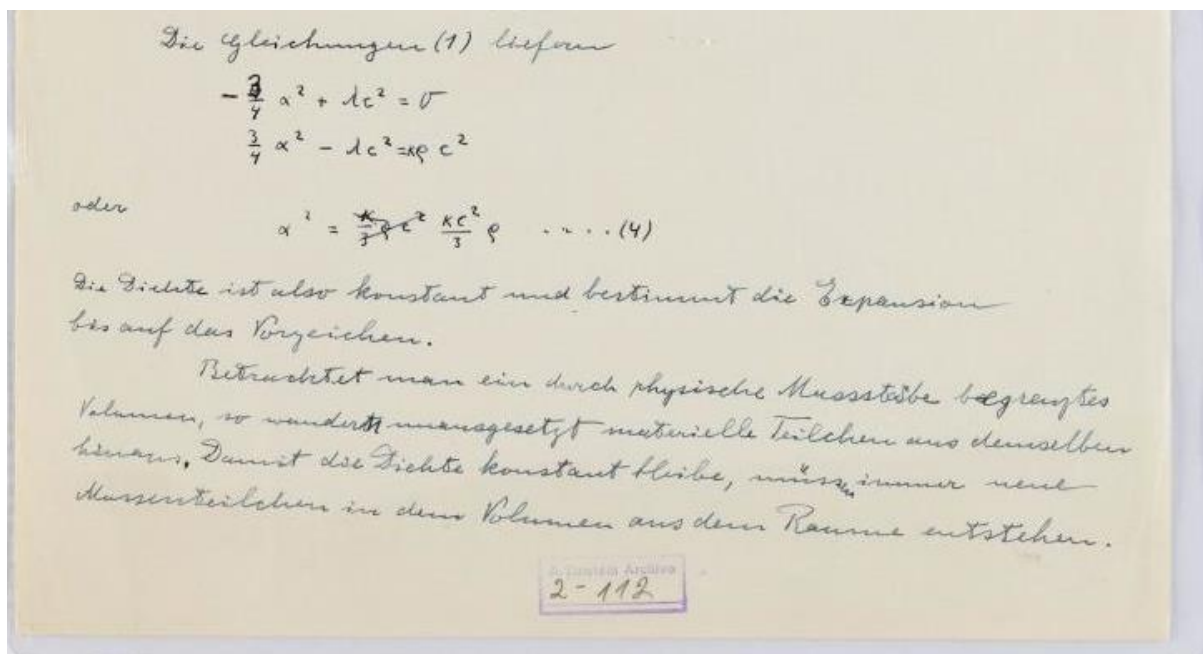 Die Gleichungen (1) liefern
- 3/4 α² + λc² = 0
3/4 α² - λc² = κρ c²
oder
α² = κc²/3 ρ .....(4)
Die Dichte ist also konstant und bestimmt die Expansion
bis auf das Vorzeichen.
Betrachtet man ein durch physische Massstäbe begrenztes
Volumen, so wandern unausgesetzt materielle Teilchen aus demselben
hinaus. Damit die Dichte konstant bleibe, müssen immer neue
Massenteilchen in dem Volumen aus dem Raume entstehen.
A. Einstein Archive
2-112